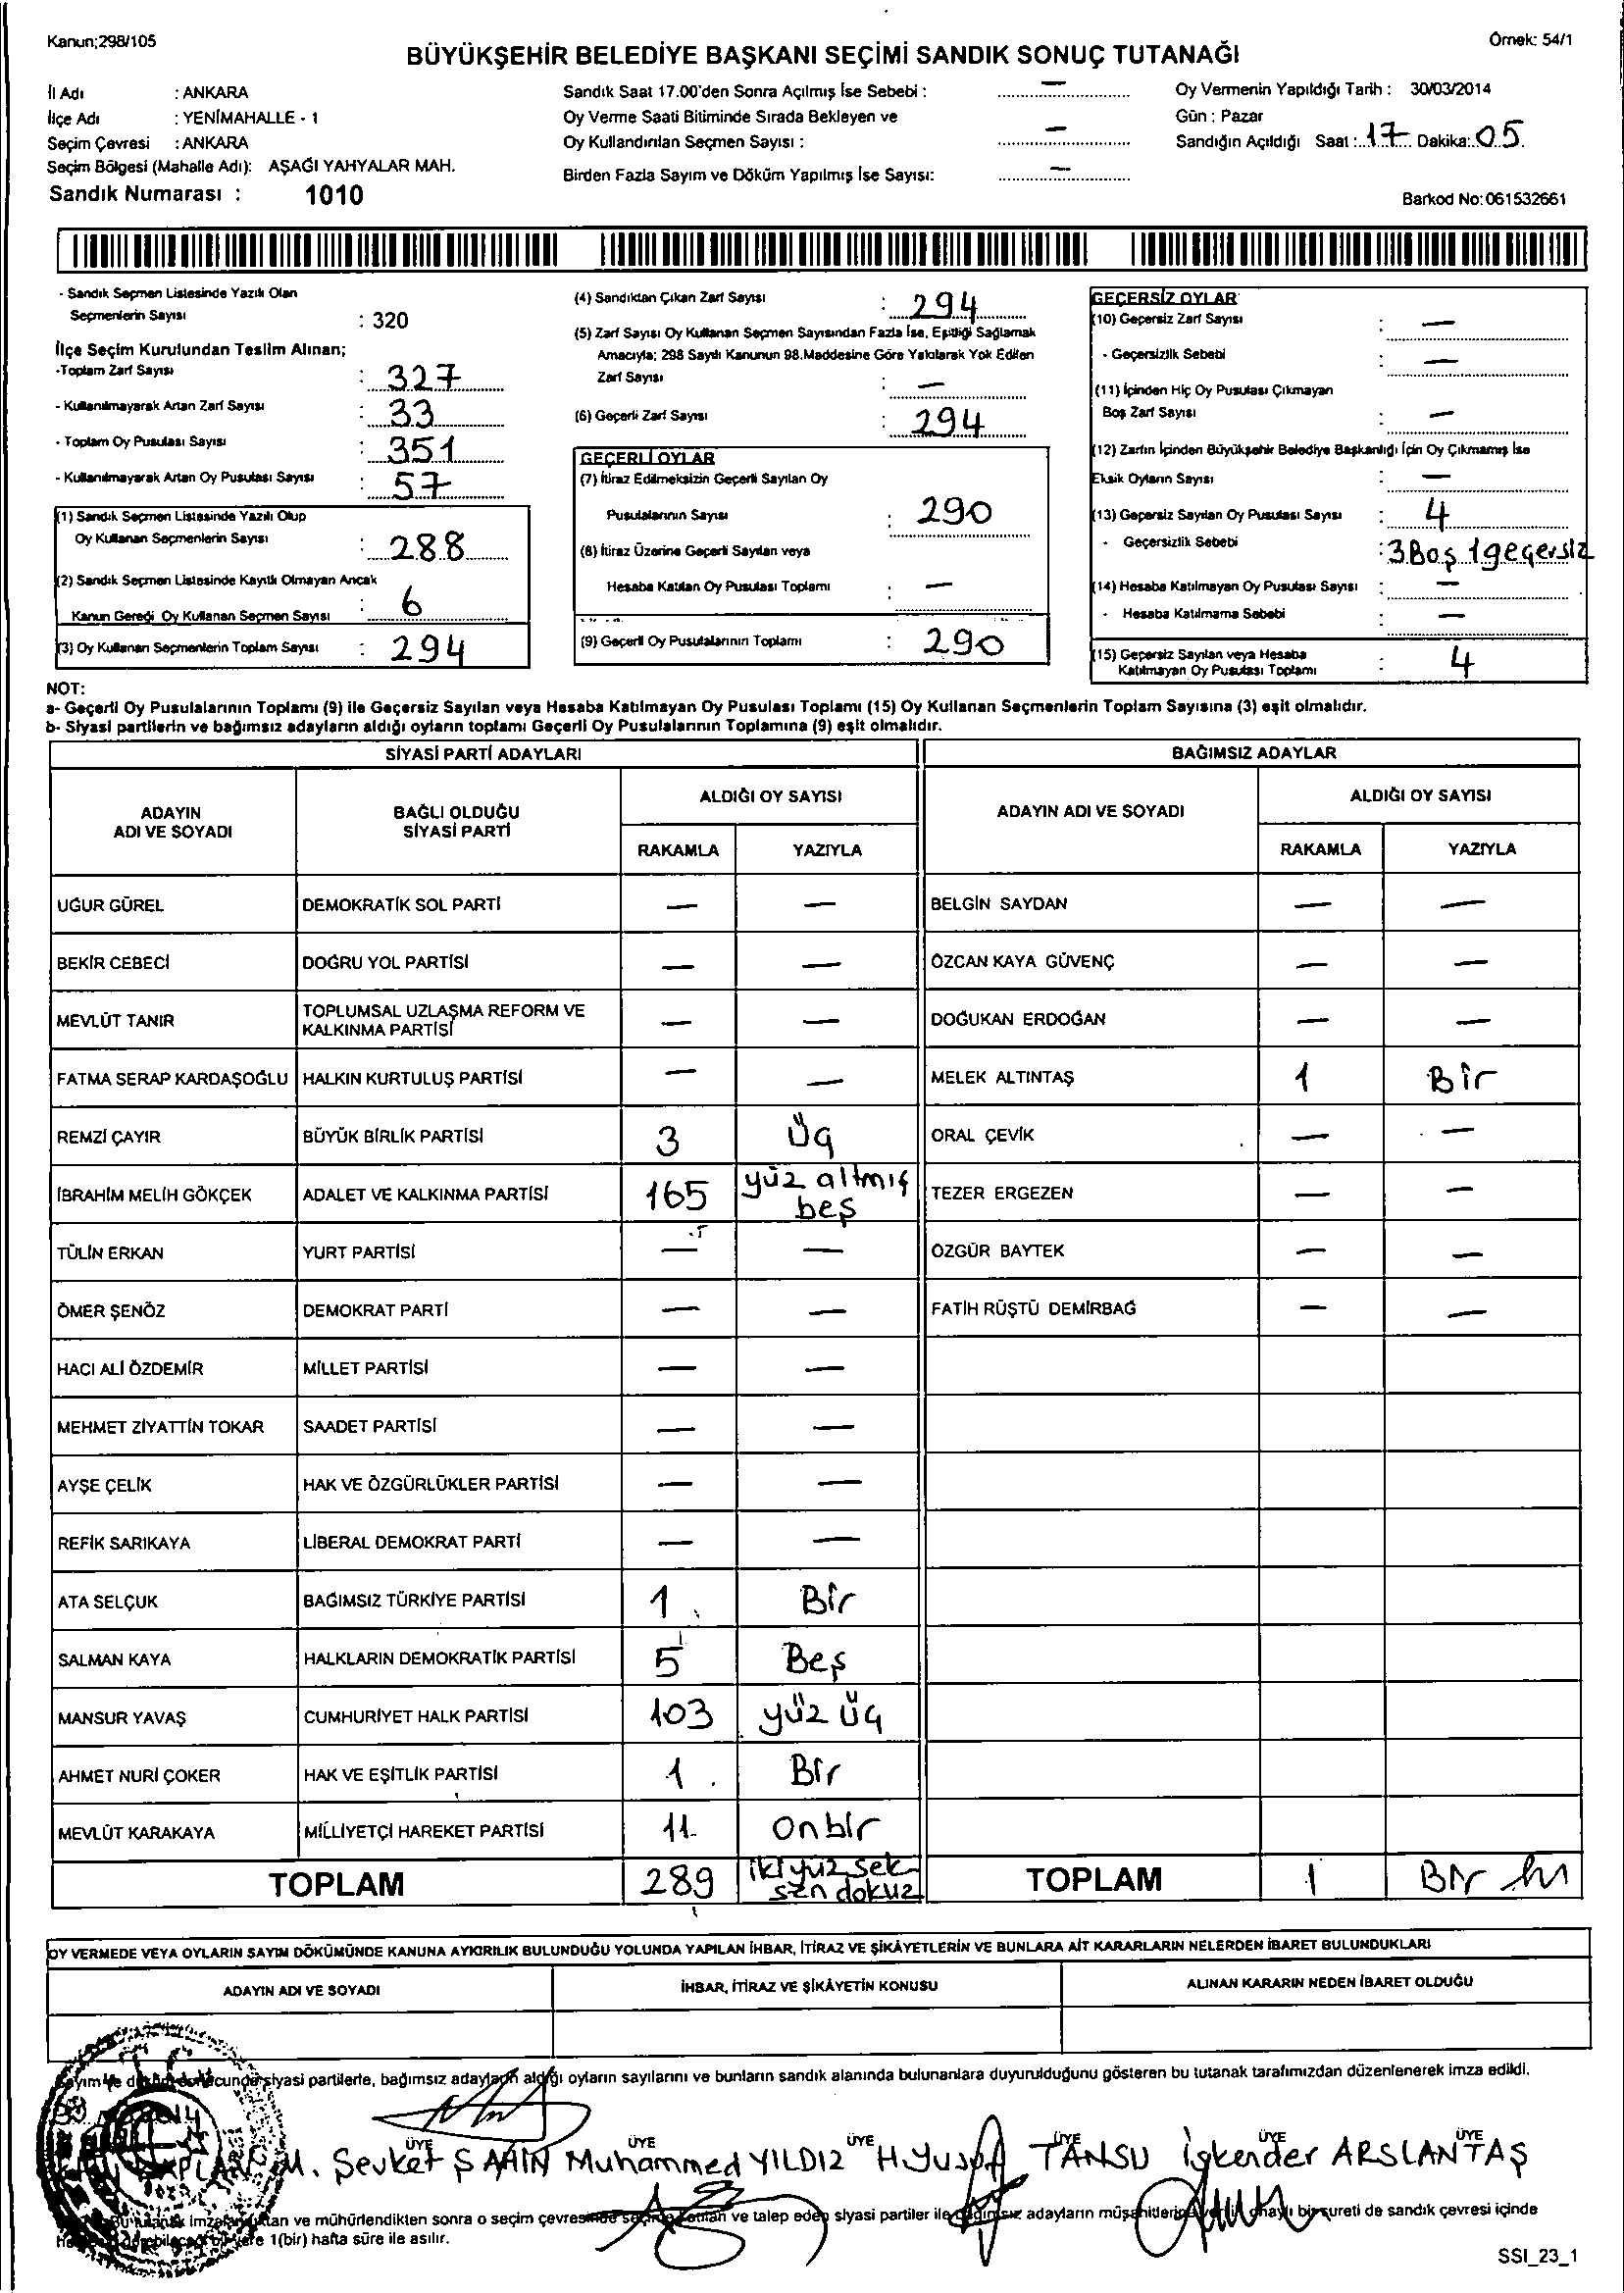 Kanun;298/105
Örnek: 54/1
BÜYÜKŞEHİR BELEDİYE BAŞKANI SEÇİMİ SANDIK SONUÇ TUTANAĞI
İl Adı : ANKARA
İlçe Adı : YENİMAHALLE - 1
Seçim Çevresi : ANKARA
Seçim Bölgesi (Mahalle Adı): AŞAĞI YAHYALAR MAH.
Sandık Numarası : 1010
Sandık Saat 17.00'den Sonra Açılmış İse Sebebi : —
Oy Verme Saati Bitiminde Sırada Bekleyen ve
Oy Kullandırılan Seçmen Sayısı : —
Birden Fazla Sayım ve Döküm Yapılmış İse Sayısı: —
Oy Vermenin Yapıldığı Tarih : 30/03/2014
Gün : Pazar
Sandığın Açıldığı Saat : 17 Dakika: 05
Barkod No: 061532661
- Sandık Seçmen Listesinde Yazılı Olan
Seçmenlerin Sayısı : 320
İlçe Seçim Kurulundan Teslim Alınan;
-Toplam Zarf Sayısı : 327
- Kullanılmayarak Artan Zarf Sayısı : 33
- Toplam Oy Pusulası Sayısı : 351
- Kullanılmayarak Artan Oy Pusulası Sayısı : 57
(1) Sandık Seçmen Listesinde Yazılı Olup
Oy Kullanan Seçmenlerin Sayısı : 288
(2) Sandık Seçmen Listesinde Kayıtlı Olmayan Ancak
Kanun Gereği Oy Kullanan Seçmen Sayısı : 6
(3) Oy Kullanan Seçmenlerin Toplam Sayısı : 294
(4) Sandıktan Çıkan Zarf Sayısı : 294
(5) Zarf Sayısı Oy Kullanan Seçmen Sayısından Fazla İse, Eşitliği Sağlamak
Amacıyla; 298 Sayılı Kanunun 98.Maddesine Göre Yakılarak Yok Edilen
Zarf Sayısı : —
(6) Geçerli Zarf Sayısı : 294
GEÇERLİ OYLAR
(7) İtiraz Edilmeksizin Geçerli Sayılan Oy
Pusulalarının Sayısı : 290
(8) İtiraz Üzerine Geçerli Sayılan veya
Hesaba Katılan Oy Pusulası Toplamı : —
(9) Geçerli Oy Pusulalarının Toplamı : 290
GEÇERSİZ OYLAR
(10) Geçersiz Zarf Sayısı : —
- Geçersizlik Sebebi : —
(11) İçinden Hiç Oy Pusulası Çıkmayan
Boş Zarf Sayısı : —
(12) Zarfın İçinden Büyükşehir Belediye Başkanlığı İçin Oy Çıkmamış İse
Eksik Oyların Sayısı : —
(13) Geçersiz Sayılan Oy Pusulası Sayısı : 4
- Geçersizlik Sebebi : 3 Boş 1 geçersiz
(14) Hesaba Katılmayan Oy Pusulası Sayısı : —
- Hesaba Katılmama Sebebi : —
(15) Geçersiz Sayılan veya Hesaba
Katılmayan Oy Pusulası Toplamı : 4
NOT:
a- Geçerli Oy Pusulalarının Toplamı (9) ile Geçersiz Sayılan veya Hesaba Katılmayan Oy Pusulası Toplamı (15) Oy Kullanan Seçmenlerin Toplam Sayısına (3) eşit olmalıdır.
b- Siyasi partilerin ve bağımsız adayların aldığı oyların toplamı Geçerli Oy Pusulalarının Toplamına (9) eşit olmalıdır.
SİYASİ PARTİ ADAYLARI BAĞIMSIZ ADAYLAR
ADAYIN ADI VE SOYADI BAĞLI OLDUĞU SİYASİ PARTİ ALDIĞI OY SAYISI ADAYIN ADI VE SOYADI ALDIĞI OY SAYISI
RAKAMLA YAZIYLA RAKAMLA YAZIYLA
UĞUR GÜREL DEMOKRATİK SOL PARTİ — — BELGİN SAYDAN — —
BEKİR CEBECİ DOĞRU YOL PARTİSİ — — ÖZCAN KAYA GÜVENÇ — —
MEVLÜT TANIR TOPLUMSAL UZLAŞMA REFORM VE KALKINMA PARTİSİ — — DOĞUKAN ERDOĞAN — —
FATMA SERAP KARDAŞOĞLU HALKIN KURTULUŞ PARTİSİ — — MELEK ALTINTAŞ 1 Bir
REMZİ ÇAYIR BÜYÜK BİRLİK PARTİSİ 3 üç ORAL ÇEVİK — —
İBRAHİM MELİH GÖKÇEK ADALET VE KALKINMA PARTİSİ 165 yüz altmış beş TEZER ERGEZEN — —
TÜLİN ERKAN YURT PARTİSİ — — ÖZGÜR BAYTEK — —
ÖMER ŞENÖZ DEMOKRAT PARTİ — — FATİH RÜŞTÜ DEMİRBAĞ — —
HACI ALİ ÖZDEMİR MİLLET PARTİSİ — —
MEHMET ZİYATTİN TOKAR SAADET PARTİSİ — —
AYŞE ÇELİK HAK VE ÖZGÜRLÜKLER PARTİSİ — —
REFİK SARIKAYA LİBERAL DEMOKRAT PARTİ — —
ATA SELÇUK BAĞIMSIZ TÜRKİYE PARTİSİ 1 Bir
SALMAN KAYA HALKLARIN DEMOKRATİK PARTİSİ 5 Beş
MANSUR YAVAŞ CUMHURİYET HALK PARTİSİ 103 yüz üç
AHMET NURİ ÇOKER HAK VE EŞİTLİK PARTİSİ 1 Bir
MEVLÜT KARAKAYA MİLLİYETÇİ HAREKET PARTİSİ 11 onbir
TOPLAM 289 ikiyüz sek- sen dokuz TOPLAM 1 Bir
OY VERMEDE VEYA OYLARIN SAYIM DÖKÜMÜNDE KANUNA AYKIRILIK BULUNDUĞU YOLUNDA YAPILAN İHBAR, İTİRAZ VE ŞİKÂYETLERİN VE BUNLARA AİT KARARLARIN NELERDEN İBARET BULUNDUKLARI
ADAYIN ADI VE SOYADI İHBAR, İTİRAZ VE ŞİKÂYETİN KONUSU ALINAN KARARIN NEDEN İBARET OLDUĞU
siyasi partilerle, bağımsız adayların aldığı oyların sayılarını ve bunların sandık alanında bulunanlara duyurulduğunu gösteren bu tutanak tarafımızdan düzenlenerek imza edildi.
ÜYE ÜYE ÜYE ÜYE ÜYE ÜYE
M. Şevket ŞAHİN Muhammed YILDIZ H.Yusuf TANSU İskender ARSLANTAŞ
ve mühürlendikten sonra o seçim çevresinde seçime katılan ve talep eden siyasi partiler ile bağımsız adayların müşahitlerine onaylı bir sureti de sandık çevresi içinde
1(bir) hafta süre ile asılır.
SSI_23_1